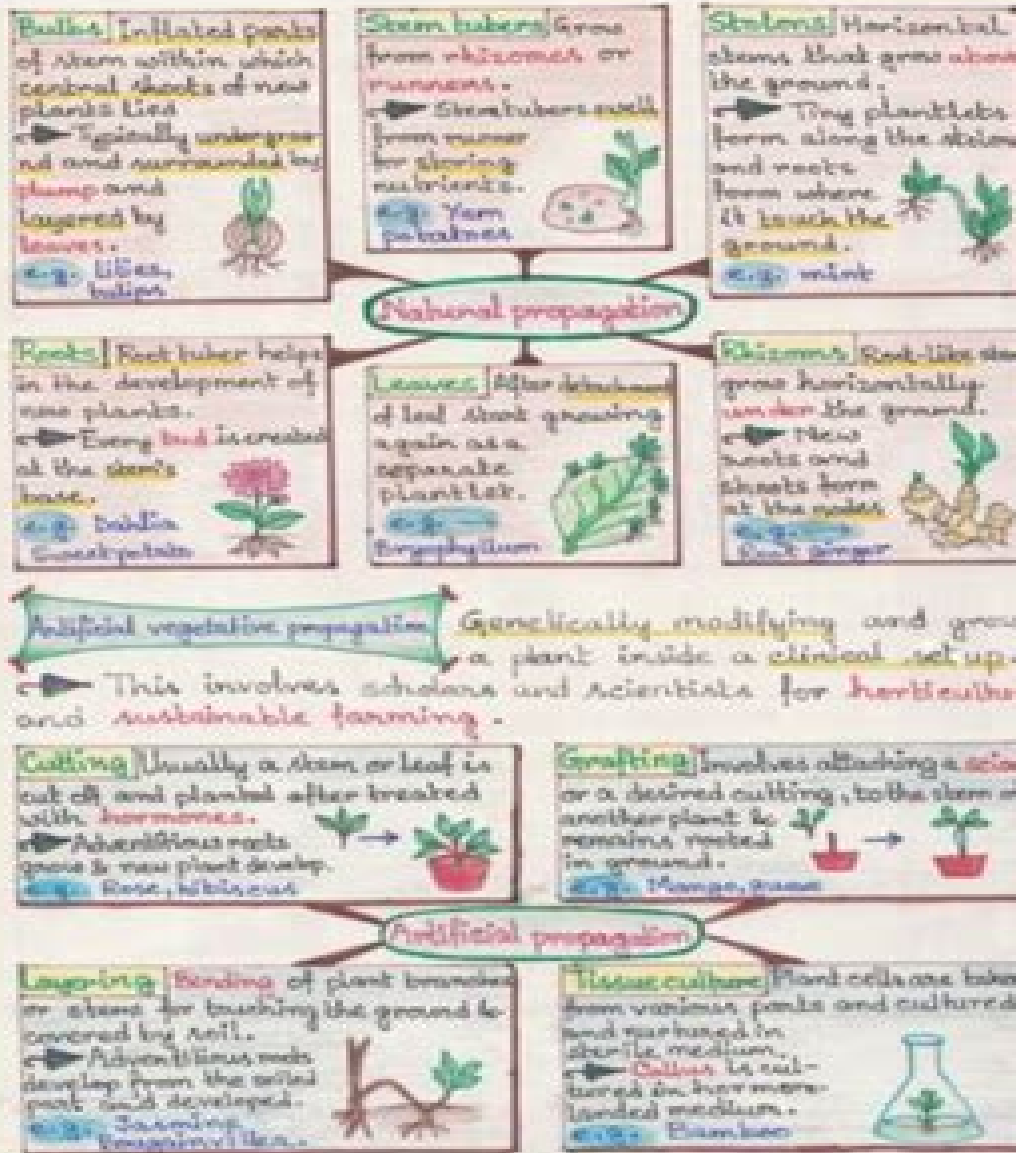 Bulbs Inflated parts
of stem within which
central shoots of new
plants lies
Typically undergrou-
nd and surrounded by
plump and
layered by
leaves.
e.g. lilies,
tulips
Stem tubers Grow
from rhizomes or
runners.
Stem tubers swell
from runner
for storing
nutrients.
e.g. Yam
potatoes
Stolons Horizontal
stems that grow above
the ground.
Tiny plantlets
form along the stolons
and roots
form where
it touch the
ground.
e.g. mint
Natural propagation
Roots Root tuber helps
in the development of
new plants.
Every bud is created
at the stem's
base.
e.g. Dahlia
Sweet potato
Leaves After detachment
of leaf start growing
again as a
separate
plantlet.
e.g.
Bryophyllum
Rhizoms Root-like stem
grow horizontally
under the ground.
New
roots and
shoots form
at the nodes
e.g.
Root ginger
Artificial vegetative propagation
Genetically modifying and grow
a plant inside a clinical set up.
This involves scholars and scientists for horticultur
and sustainable farming.
Cutting Usually a stem or leaf is
cut off and planted after treated
with hormones.
Adventitious roots
grow & new plant develop.
e.g. Rose, hibiscus
Grafting Involves attaching a scion
or a desired cutting, to the stem of
another plant &
remains rooted
in ground.
e.g. Mango, guava
Artificial propagation
Layering Bending of plant branches
or stems for touching the ground &
covered by soil.
Adventitious roots
develop from the soiled
part and developed.
e.g. Jasmine
Tissue culture Plant cells are taken
from various parts and cultured
and nurtured in
sterile medium.
Callus is cul-
tured in hormone-
medium.
e.g. Bamboo